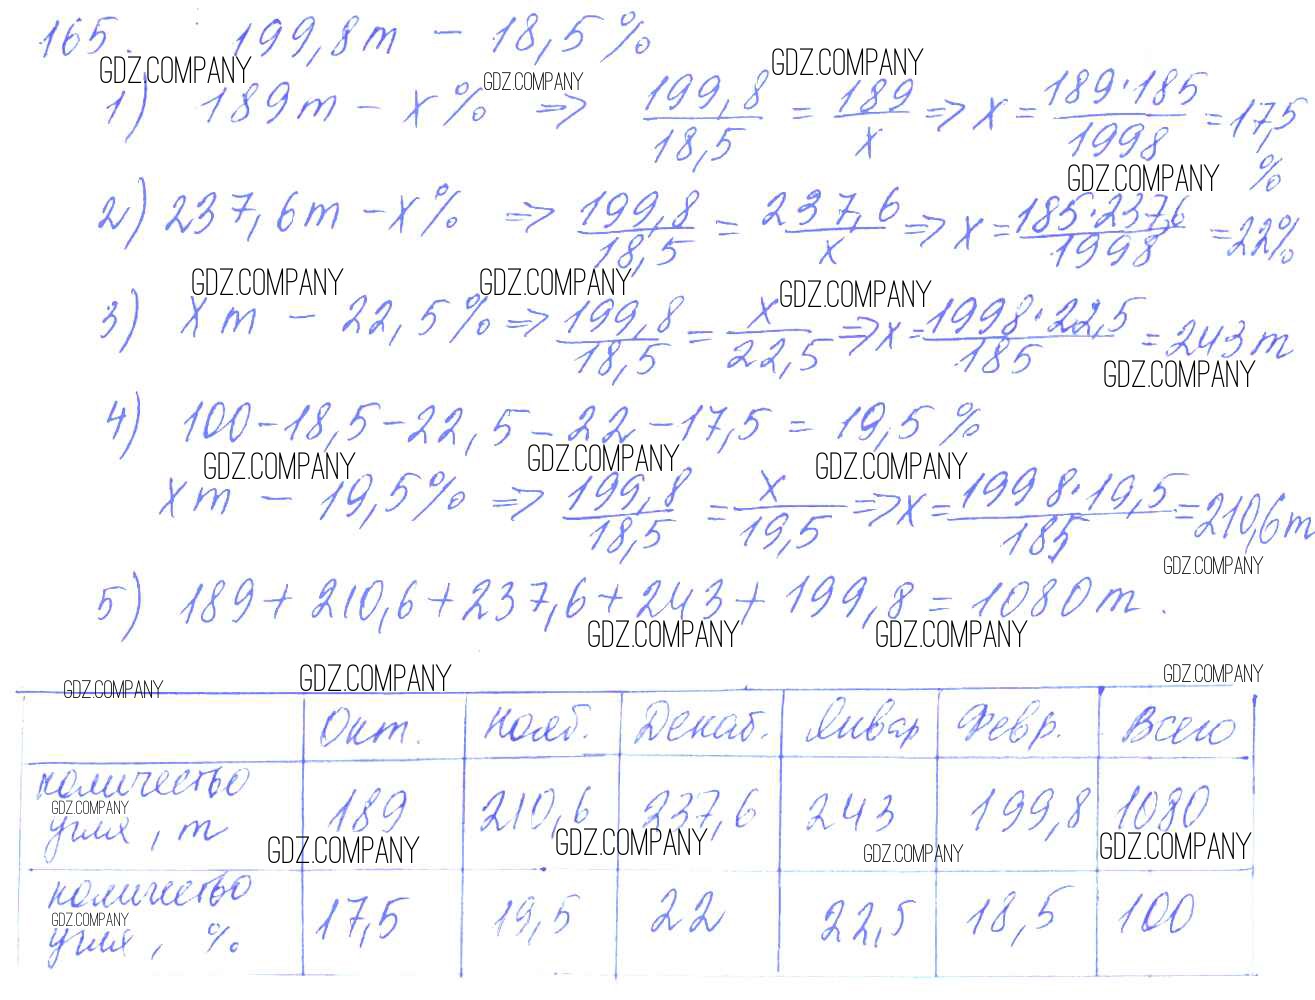 165. 199,8 т – 18,5 %
GDZ.COMPANY GDZ.COMPANY GDZ.COMPANY
1) 189 т – x % => 199,8/18,5 = 189/x => x = 189·185/1998 = 17,5 %
GDZ.COMPANY
2) 237,6 т – x % => 199,8/18,5 = 237,6/x => x = 185·237,6/1998 = 22%
GDZ.COMPANY GDZ.COMPANY GDZ.COMPANY
3) x т – 22,5 % => 199,8/18,5 = x/22,5 => x = 1998·22,5/185 = 243 т
GDZ.COMPANY
4) 100 – 18,5 – 22,5 – 22 – 17,5 = 19,5 %
GDZ.COMPANY GDZ.COMPANY GDZ.COMPANY
x т – 19,5% => 199,8/18,5 = x/19,5 => x = 1998·19,5/185 = 210,6 т
GDZ.COMPANY
5) 189 + 210,6 + 237,6 + 243 + 199,8 = 1080 т.
GDZ.COMPANY GDZ.COMPANY
GDZ.COMPANY GDZ.COMPANY GDZ.COMPANY
Окт. Нояб. Декаб. Январ Февр. Всего
количество
GDZ.COMPANY
угля, т 189 210,6 237,6 243 199,8 1080
GDZ.COMPANY GDZ.COMPANY GDZ.COMPANY GDZ.COMPANY
количество
GDZ.COMPANY
угля, % 17,5 19,5 22 22,5 18,5 100